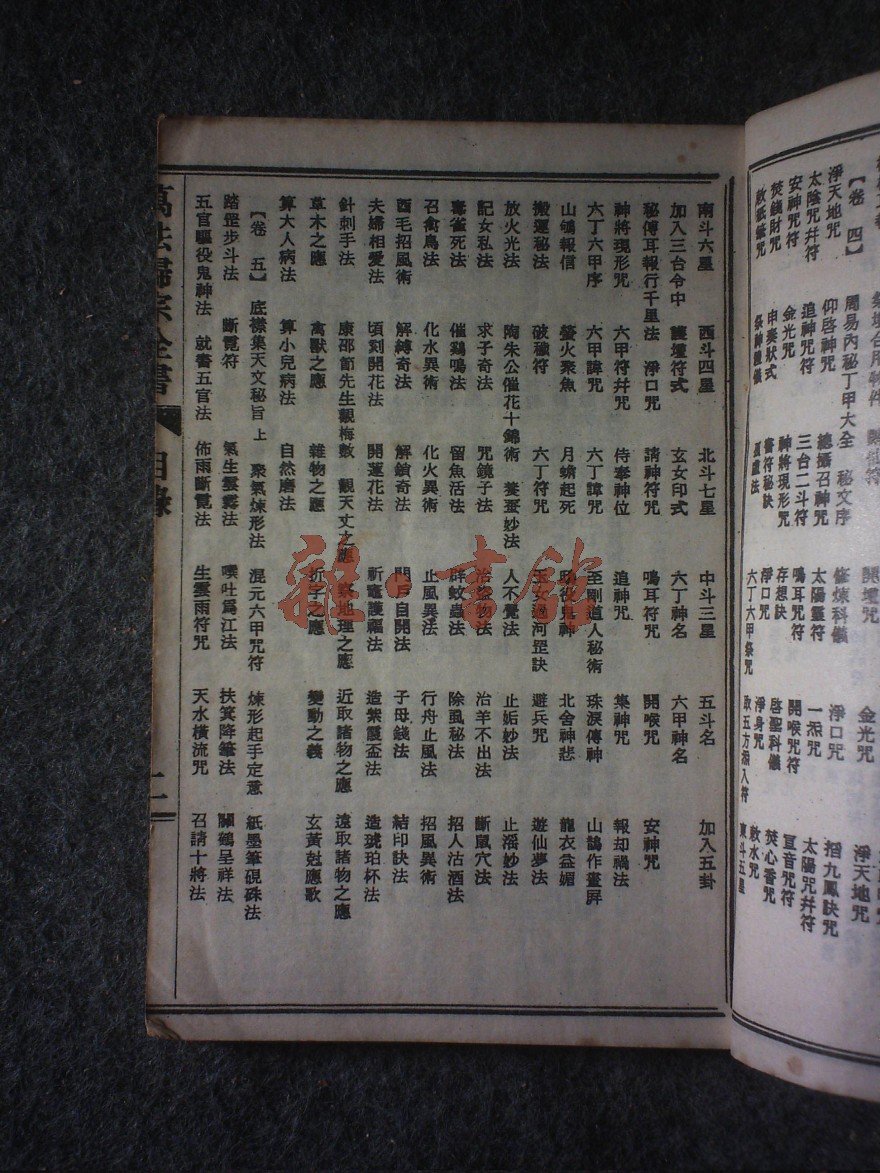 【卷四】 周易內秘丁甲大全 秘文序 開壇咒 金光咒 淨天地咒
淨天地咒 仰啓神咒 總攝召神咒 修煉科儀 淨口咒 搯九鳳訣咒
太陰咒并符 追神咒符 三台二斗符 太陽靈符 一炁咒 太陽咒并符
安神咒符 金光咒 神將現形咒 鳴耳咒符 開喉咒符 亘音咒符
焚錢財咒 申奏狀式 書符秘訣 存想訣 啓聖科儀 焚心香咒
敕紙筆咒 祭神禮儀 淨口咒 淨身咒 敕水咒
六丁六甲祭咒 取五方炁入符 東斗五星
南斗六星 西斗四星 北斗七星 中斗三星 五斗名 加入五卦
加入三台令中 護壇符式 玄女印式 六丁神名 六甲神名
秘傳耳報行千里法 淨口咒 請神符咒 鳴耳符咒 開喉咒 安神咒
神將現形咒 六甲符并咒 侍奉神位 追神咒 集神咒 報却禍法
六丁六甲序 六甲諱咒 六丁諱咒 至剛道人秘術 珠淚傳神 山鵲作畫屏
山鴝報信 螢火聚魚 月蟾起死 驅役鬼神 北舍神悲 龍衣益媚
搬運秘法 破穢符 六丁符咒 玉女過河罡訣 遊兵咒 遊仙夢法
放火光法 陶朱公催花十錦術 養蚕妙法 人不覺法 止妬妙法 止滛妙法
記女私法 求子奇法 咒鏡子法 治盜物法 治羊不出法 斷鼠穴法
毒雀死法 催鷄鳴法 留魚活法 辟蚊蟲法 除虱秘法 招人沽酒法
召禽鳥法 化水異術 化火異術 止風異法 行舟止風法 招風異術
酉毛招風術 解縛奇法 解鎖奇法 門戶自開法 子母錢法 結印訣法
夫婦相愛法 頃刻開花法 開蓮花法 祈竈護福法 造紫霞盃法 造琥珀杯法
針刺手法 康邵節先生觀梅數 觀天文之應 察地理之應 近取諸物之應 遠取諸物之應
草木之應 禽獸之應 雜物之應 折字之應 變動之義 玄黃尅應歌
算大人病法 算小兒病法 自然磨法
【卷五】 底襟集天文秘旨上 聚氣煉形法 混元六甲咒符 煉形起手定意 紙墨筆硯硃法
踏罡步斗法 斷霓符 氣生雲霧法 噗吐爲江法 扶箕降筆法 關鶴呈祥法
五官驅役鬼神法 就書五官法 佈雨斷霓法 生雲雨符咒 天水橫流咒 召請十將法
萬法歸宗全書 目錄 二
雜·書館